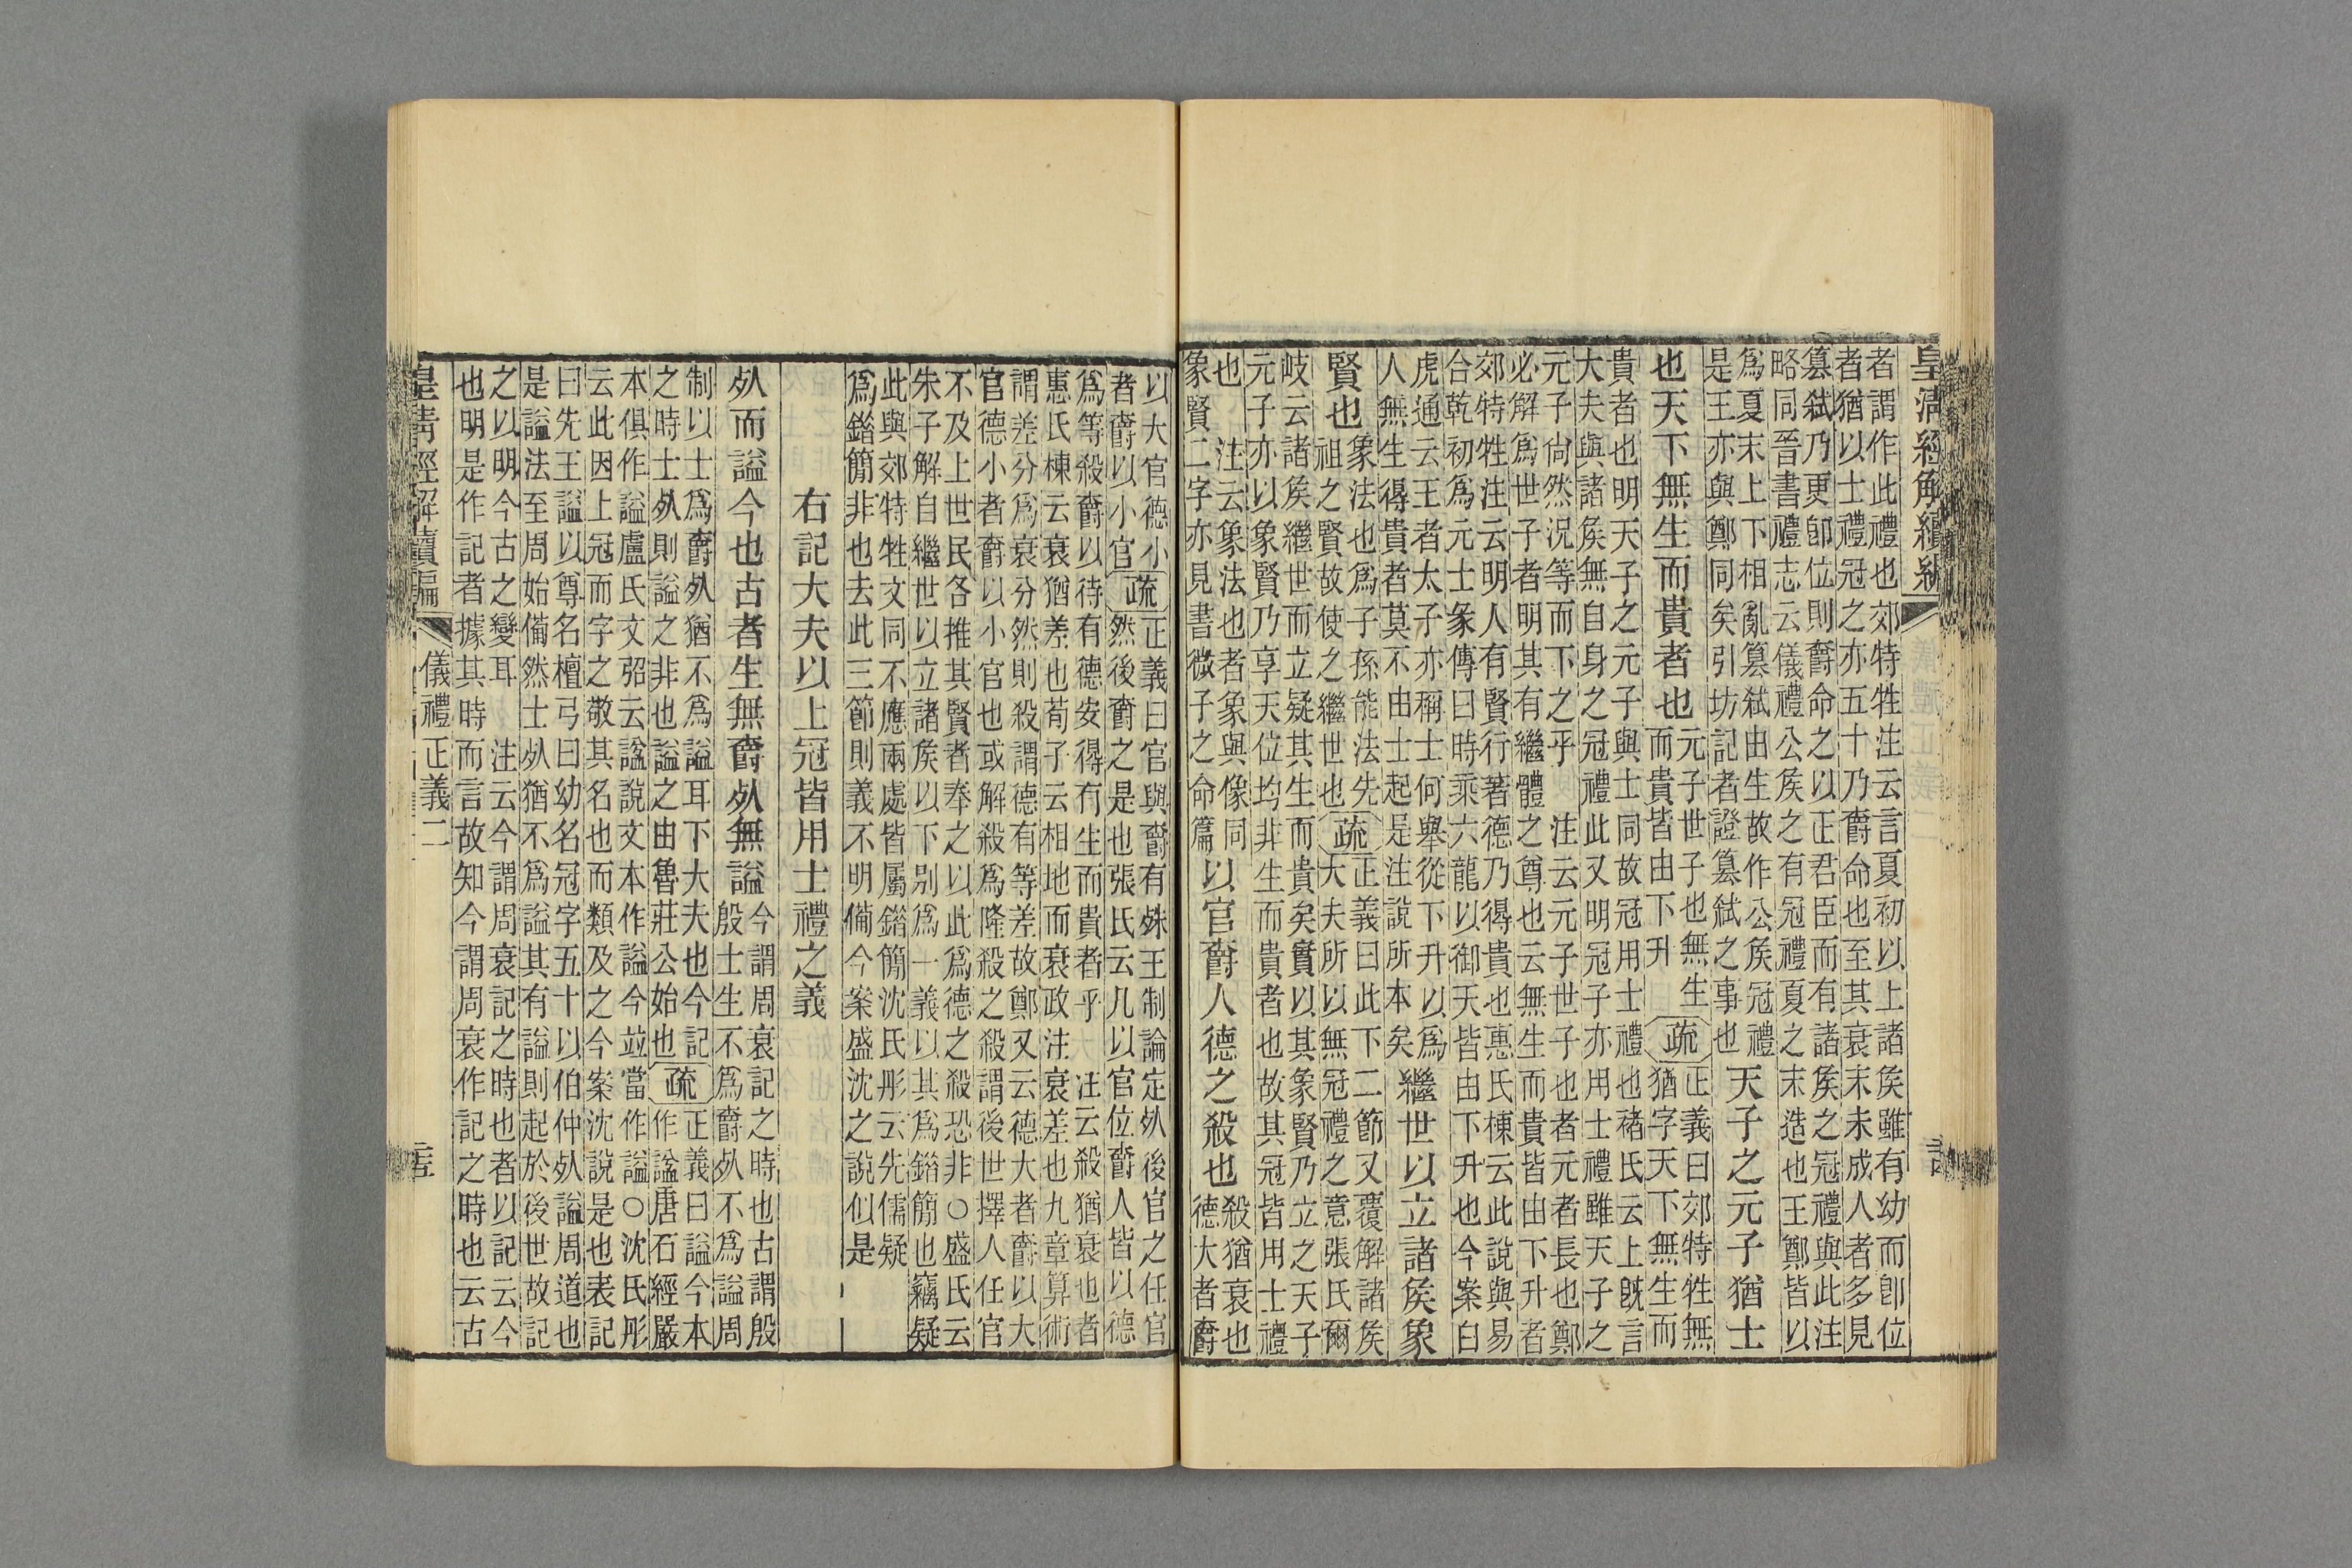 皇清經解續編
者謂作此禮也郊特牲注云言夏初以上諸矦雖有幼而卽位
者猶以士禮冠之亦五十乃爵命也至其衰末未成人者多見
篡弑乃更卽位則爵命之以正君臣而有諸矦之冠禮與此注
略同晉書禮志云儀禮公矦之有冠禮夏之末造也王鄭皆以
爲夏末上下相亂篡弑由生故作公矦冠禮
是王亦與鄭同矣引坊記者證篡弑之事也
天子之元子猶士
也天下無生而貴者也
元子世子也無生
而貴皆由下升
疏
正義曰郊特牲無
猶字天下無生而
貴者也明天子之元子與士同故冠用士禮也褚氏云上旣言
大夫與諸矦無自身之冠禮此又明冠子亦用士禮雖天子之
元子尙然況等而下之乎 注云元子世子也者元者長也鄭
必解爲世子者明其有繼體之尊也云無生而貴皆由下升者
郊特牲注云明人有賢行著德乃得貴也惠氏棟云此說與易
合乾初爲元士彖傳曰時乘六龍以御天皆由下升也今案白
虎通云王者太子亦稱士何舉從下升以爲
人無生得貴者莫不由士起是注說所本矣
繼世以立諸矦象
賢也
象法也爲子孫能法先
祖之賢故使之繼世也
疏
正義曰此下二節又覆解諸矦
大夫所以無冠禮之意張氏爾
岐云諸矦繼世而立疑其生而貴矣實以其象賢乃立之天子
元子亦以象賢乃享天位均非生而貴者也故其冠皆用士禮
也 注云象法也者象與像同
象賢二字亦見書微子之命篇
以官爵人德之殺也
殺猶衰也
德大者爵
以大官德小
者爵以小官
疏
正義曰官與爵有殊王制論定𣦸後官之任官
然後爵之是也張氏云凡以官位爵人皆以德
爲等殺爵以待有德安得有生而貴者乎 注云殺猶衰也者
惠氏棟云衰猶差也荀子云相地而衰政注衰差也九章算術
謂差分爲衰分然則殺謂德有等差故鄭又云德大者爵以大
官德小者爵以小官也或解殺爲隆殺之殺謂後世擇人任官
不及上世民各推其賢者奉之以此爲德之殺恐非○盛氏云
朱子解自繼世以立諸矦以下別爲一義以其爲錯簡也竊疑
此與郊特牲文同不應兩處皆屬錯簡沈氏彤云先儒疑
爲錯簡非也去此三節則義不明備今案盛沈之說似是
右記大夫以上冠皆用士禮之義
𣦸而謚今也古者生無爵𣦸無謚
今謂周衰記之時也古謂殷
殷士生不爲爵𣦸不爲謚周
制以士爲爵𣦸猶不爲謚耳下大夫也今記
之時士𣦸則謚之非也謚之由魯莊公始也
疏
正義曰謚今本
作諡唐石經嚴
本俱作謚盧氏文弨云諡說文本作謚今竝當作謚○沈氏彤
云此因上冠而字之敬其名也而類及之今案沈說是也表記
曰先王謚以尊名檀弓曰幼名冠字五十以伯仲𣦸謚周道也
是謚法至周始備然士𣦸猶不爲謚其有謚則起於後世故記
之以明今古之變耳 注云今謂周衰記之時也者以記云今
也明是作記者據其時而言故知今謂周衰作記之時也云古
皇清經解續編
儀禮正義二